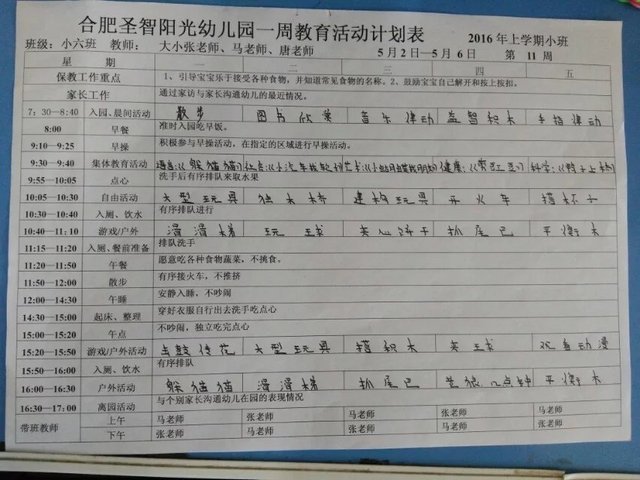 合肥圣智阳光幼儿园一周教育活动计划表 2016年上学期小班
班级：小六班 教师： 大小张老师、马老师、唐老师 5月2日—5月6日 第11周
星 期 一 二 三 四 五
保教工作重点 1、引导宝宝乐于接受各种食物，并知道常见食物的名称。2、鼓励宝宝自己解开和按上按扣。
家长工作 通过家访与家长沟通幼儿的最近情况。
7：30—8:40 入园、晨间活动 散步 图书欣赏 音乐律动 益智积木 手指律动
8:00 早餐 准时入园吃早饭。
9:10—9:25 早操 积极参与早操活动。在指定的区域进行早操活动。
9:30—9:40 集体教育活动 语言：《躲猫猫》 健康： 科学：
9:55—10:05 点心 洗手后有序排队来取水果
10:05—10:30 自由活动 大型玩具 独木桥 建构玩具 开火车 搭杯子
10:30—10:40 入厕、饮水 有序排队进行
10:40—11:10 游戏/户外 滑滑梯 玩球 夹心饼干 抓尾巴 平衡木
11:15—11:20 入厕、餐前准备 排队洗手
11:20—11:50 午餐 愿意吃各种食物蔬菜，不挑食。
11:50—12:00 散步 有序接火车，不推挤
12:00—14:30 午睡 安静入睡，不吵闹
14:30—15:00 起床、整理 穿好衣服自行出去洗手吃点心
15:00—15:20 午点 不吵闹，独立吃完点心
15:20—15:50 游戏/户外活动 击鼓传花 大型玩具 搭积木 夹球 观看动漫
15:50—16:00 入厕、饮水 有序排队
16:00—16:30 户外活动 躲猫猫 滑滑梯 抓尾巴 老狼几点钟 平衡木
16:30—17:00 离园活动 与个别家长沟通幼儿在园的表现情况
带班教师 上午 马老师 张老师 马老师 张老师 马老师
下午 张老师 马老师 张老师 马老师 张老师